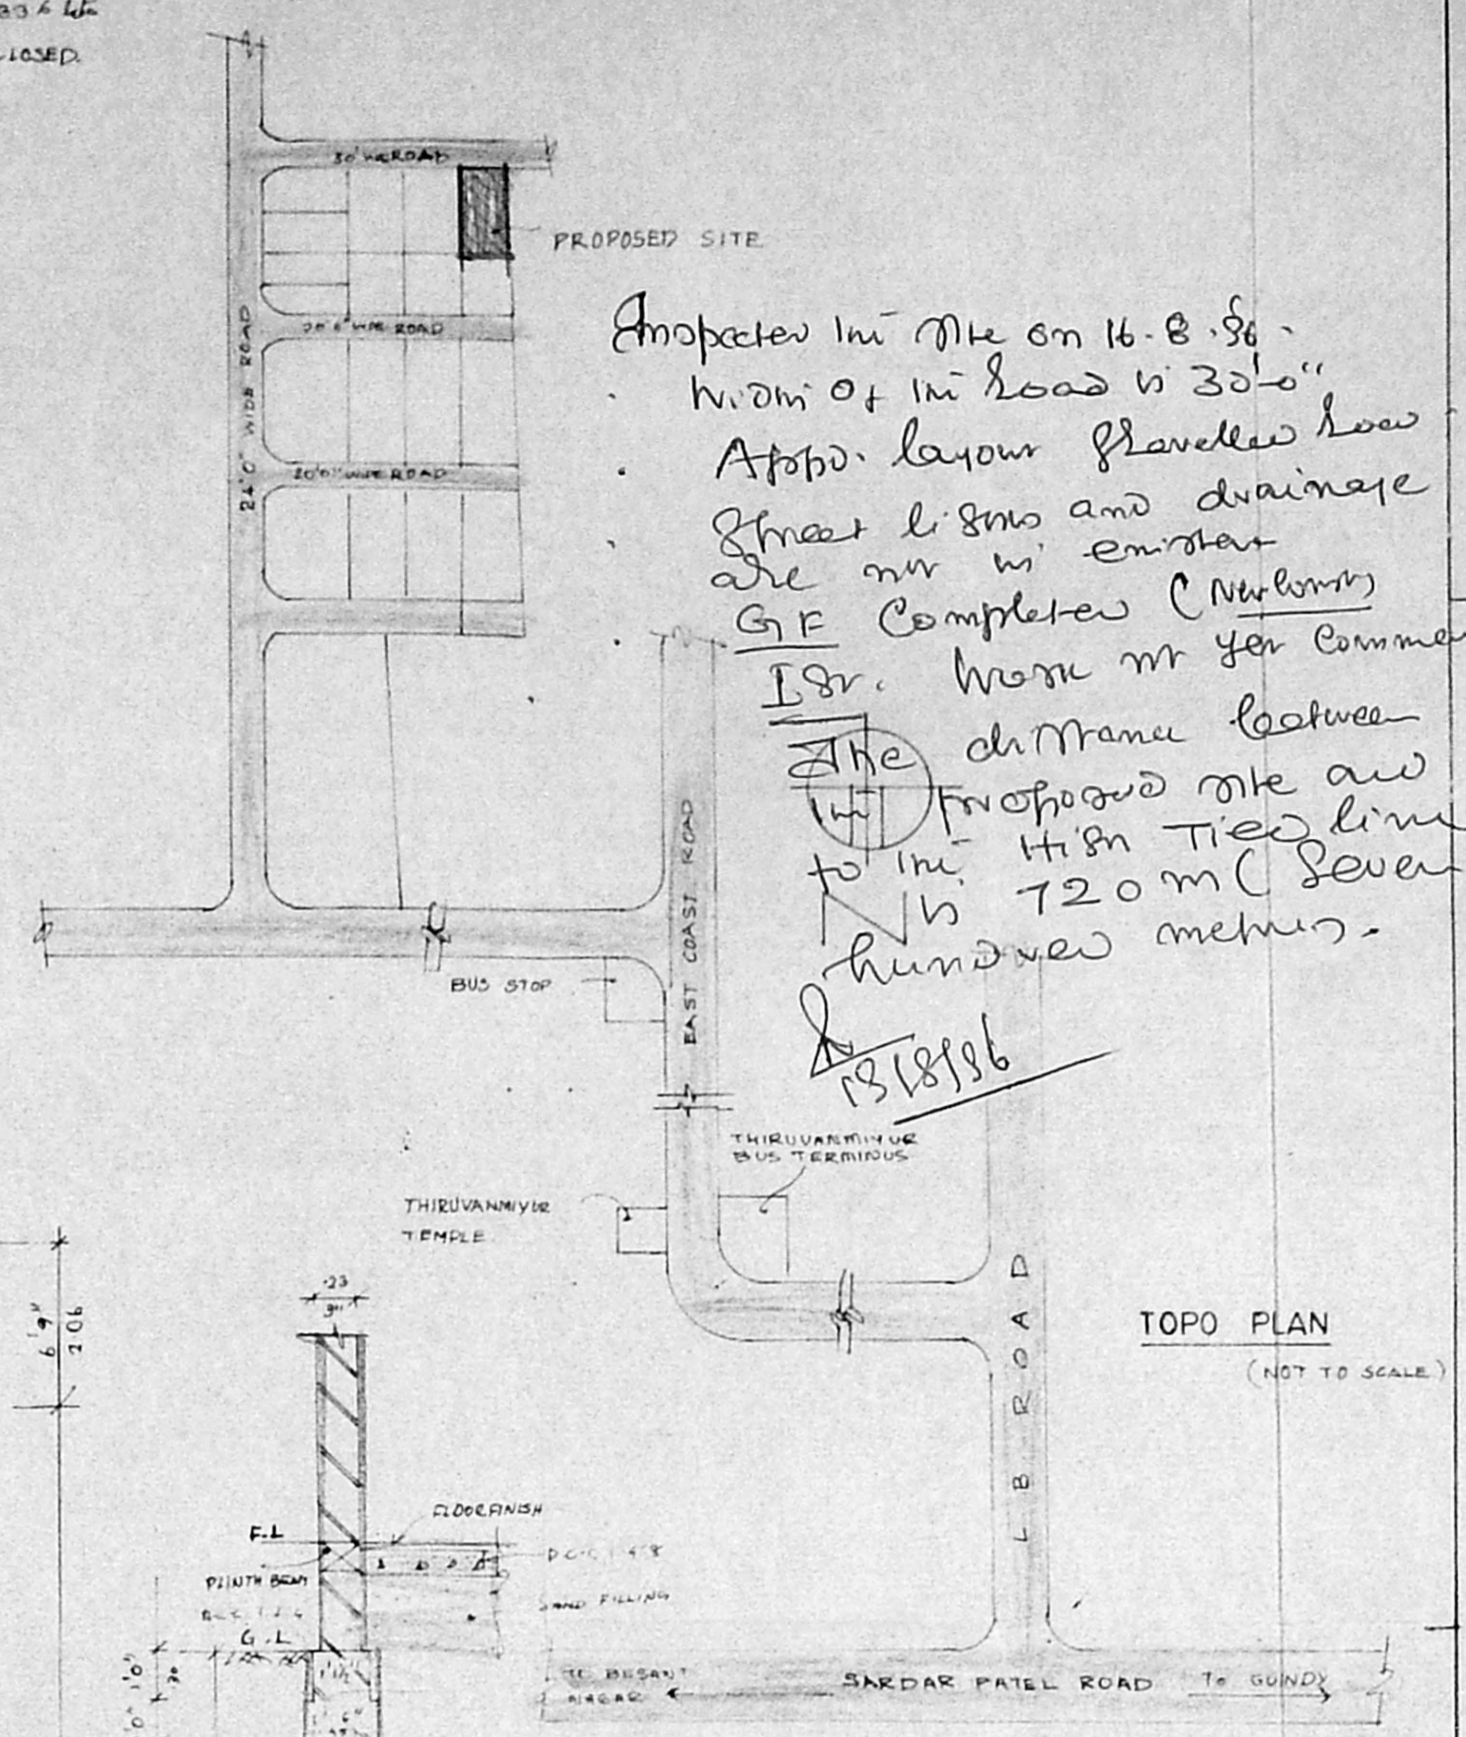 LOSED.
30' WIDE ROAD
PROPOSED SITE
20'0" WIDE ROAD
24'0" WIDE ROAD
20'0" WIDE ROAD
Inspected the site on 16.8.96.
Width of the Road is 30'-0"
Appd. layout gravelled road
Street lights and drainage
are not in existent
GF Completed (
Ist. Work not yet comme
The distance between
the proposed site and
to the High Tied line
is 720 m (Seven
hundred metres.
N
EAST COAST ROAD
BUS STOP
THIRUVANMIYUR
BUS TERMINUS
THIRUVANMIYUR
TEMPLE
L B ROAD
TOPO PLAN
(NOT TO SCALE)
6'9"
2.06
.23
9"
FLOOR FINISH
F.L
PLINTH BEAM
SAND FILLING
G.L
1'0"
30
TO BESANT
NAGAR
SARDAR PATEL ROAD
To GUINDY